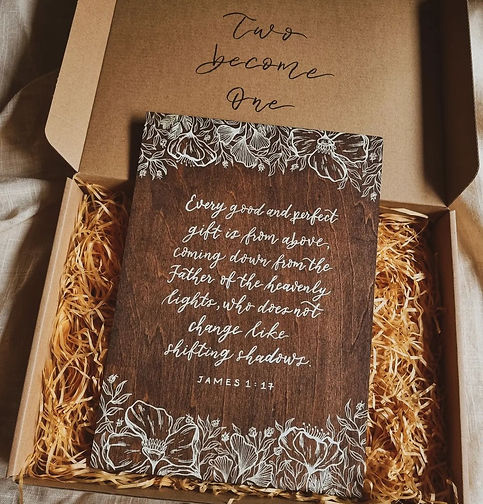 Two
become
One
Every good and perfect
gift is from above,
coming down from the
Father of the heavenly
lights, who does not
change like
shifting shadows.
JAMES 1:17